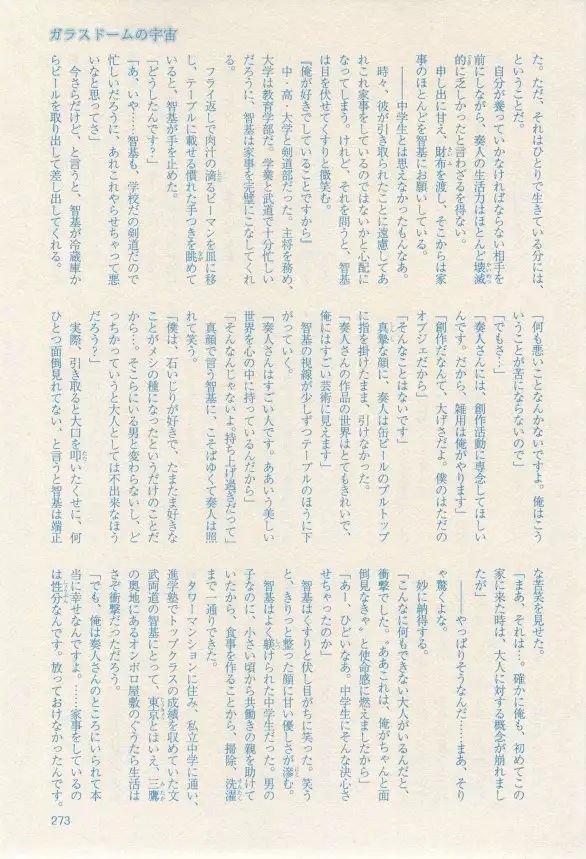 ガラスドームの宇宙
た。ただ、それはひとりで生きている分には、
ということだ。
自分が養っていかなければならない相手を
前にしながら、奏人の生活力はほとんど壊滅
的に乏しかったと言わざるを得ない。
申し出に甘え、財布を渡し、そこからは家
事のほとんどを智基にお願いしている。
――中学生とは思えなかったもんなあ。
時々、彼が引き取られたことに遠慮してあ
れこれ家事をしているのではないかと心配に
なってしまう。けれど、それを問うと、智基
は目を伏せてくすりと微笑む。
『俺が好きでしていることですから』
中・高・大学と剣道部だった。主将を務め、
大学は教育学部だ。学業と武道で十分忙しい
だろうに、智基は家事を完璧にこなしてくれ
る。
フライ返しで肉汁の滴るピーマンを皿に移
し、テーブルに載せる慣れた手つきを眺めて
いると、智基が手を止めた。
「どうしたんです?」
「あ、いや……智基も、学校だの剣道だので
忙しいだろうに、あれこれやらせちゃって悪
いなと思ってさ」
今さらだけど、と言うと、智基が冷蔵庫か
らビールを取り出して差し出してくれる。
「何も悪いことなんかないですよ。俺はこう
いうことが苦にならないので」
「でもさ…」
「奏人さんには、創作活動に専念してほしい
んです。だから、雑用は俺がやります」
「創作だなんて、大げさだよ。僕のはただの
オブジェだから」
「そんなことはないです」
真摯な顔に、奏人は缶ビールのプルトップ
に指を掛けたまま、引けなかった。
「奏人さんの作品の世界はとてもきれいで、
俺にはすごい芸術に見えます」
智基の視線が少しずつテーブルのほうに下
がっていく。
「奏人さんはすごい人です。ああいう美しい
世界を心の中に持っているんだから」
「そんなんじゃないよ。持ち上げ過ぎだって」
真顔で言う智基に、こそばゆくて奏人は照
れて笑う。
「僕は、石いじりが好きで、たまたま好きな
ことがメシの種になったというだけのことだ
から…。そこらにいる男と変わらないし、ど
っちかっていうと大人としては不出来なほう
だろう?」
実際、引き取ると大口を叩いたくせに、何
ひとつ面倒見れてない、と言うと智基は端正
な苦笑を見せた。
「まあ、それは…。確かに俺も、初めてこの
家に来た時は、大人に対する概念が崩れまし
たが」
――やっぱりそうなんだ……まあ、そり
ゃ驚くよな。
妙に納得する。
「こんなに何もできない大人がいるんだと、
衝撃でした。〝ああこれは、俺がちゃんと面
倒見なきゃ〟と使命感に燃えましたから」
「あー、ひどいなあ。中学生にそんな決心さ
せちゃったのか」
智基はくすりと伏し目がちに笑った。笑う
と、きりっと整った顔に甘い優しさが滲む。
智基はよく躾けられた中学生だった。男の
子なのに、小さい頃から共働きの親を助けて
いたから、食事を作ることから、掃除、洗濯
まで一通りできた。
タワーマンションに住み、私立中学に通い、
進学塾でトップクラスの成績を収めていた文
武両道の智基にとって、東京とはいえ、三鷹
の奥地にあるオンボロ屋敷のぐうたら生活は
さぞ衝撃だっただろう。
「でも、俺は奏人さんのところにいられて本
当に幸せなんですよ。……家事をしているの
は性分なんです。放っておけなかったんです。
273